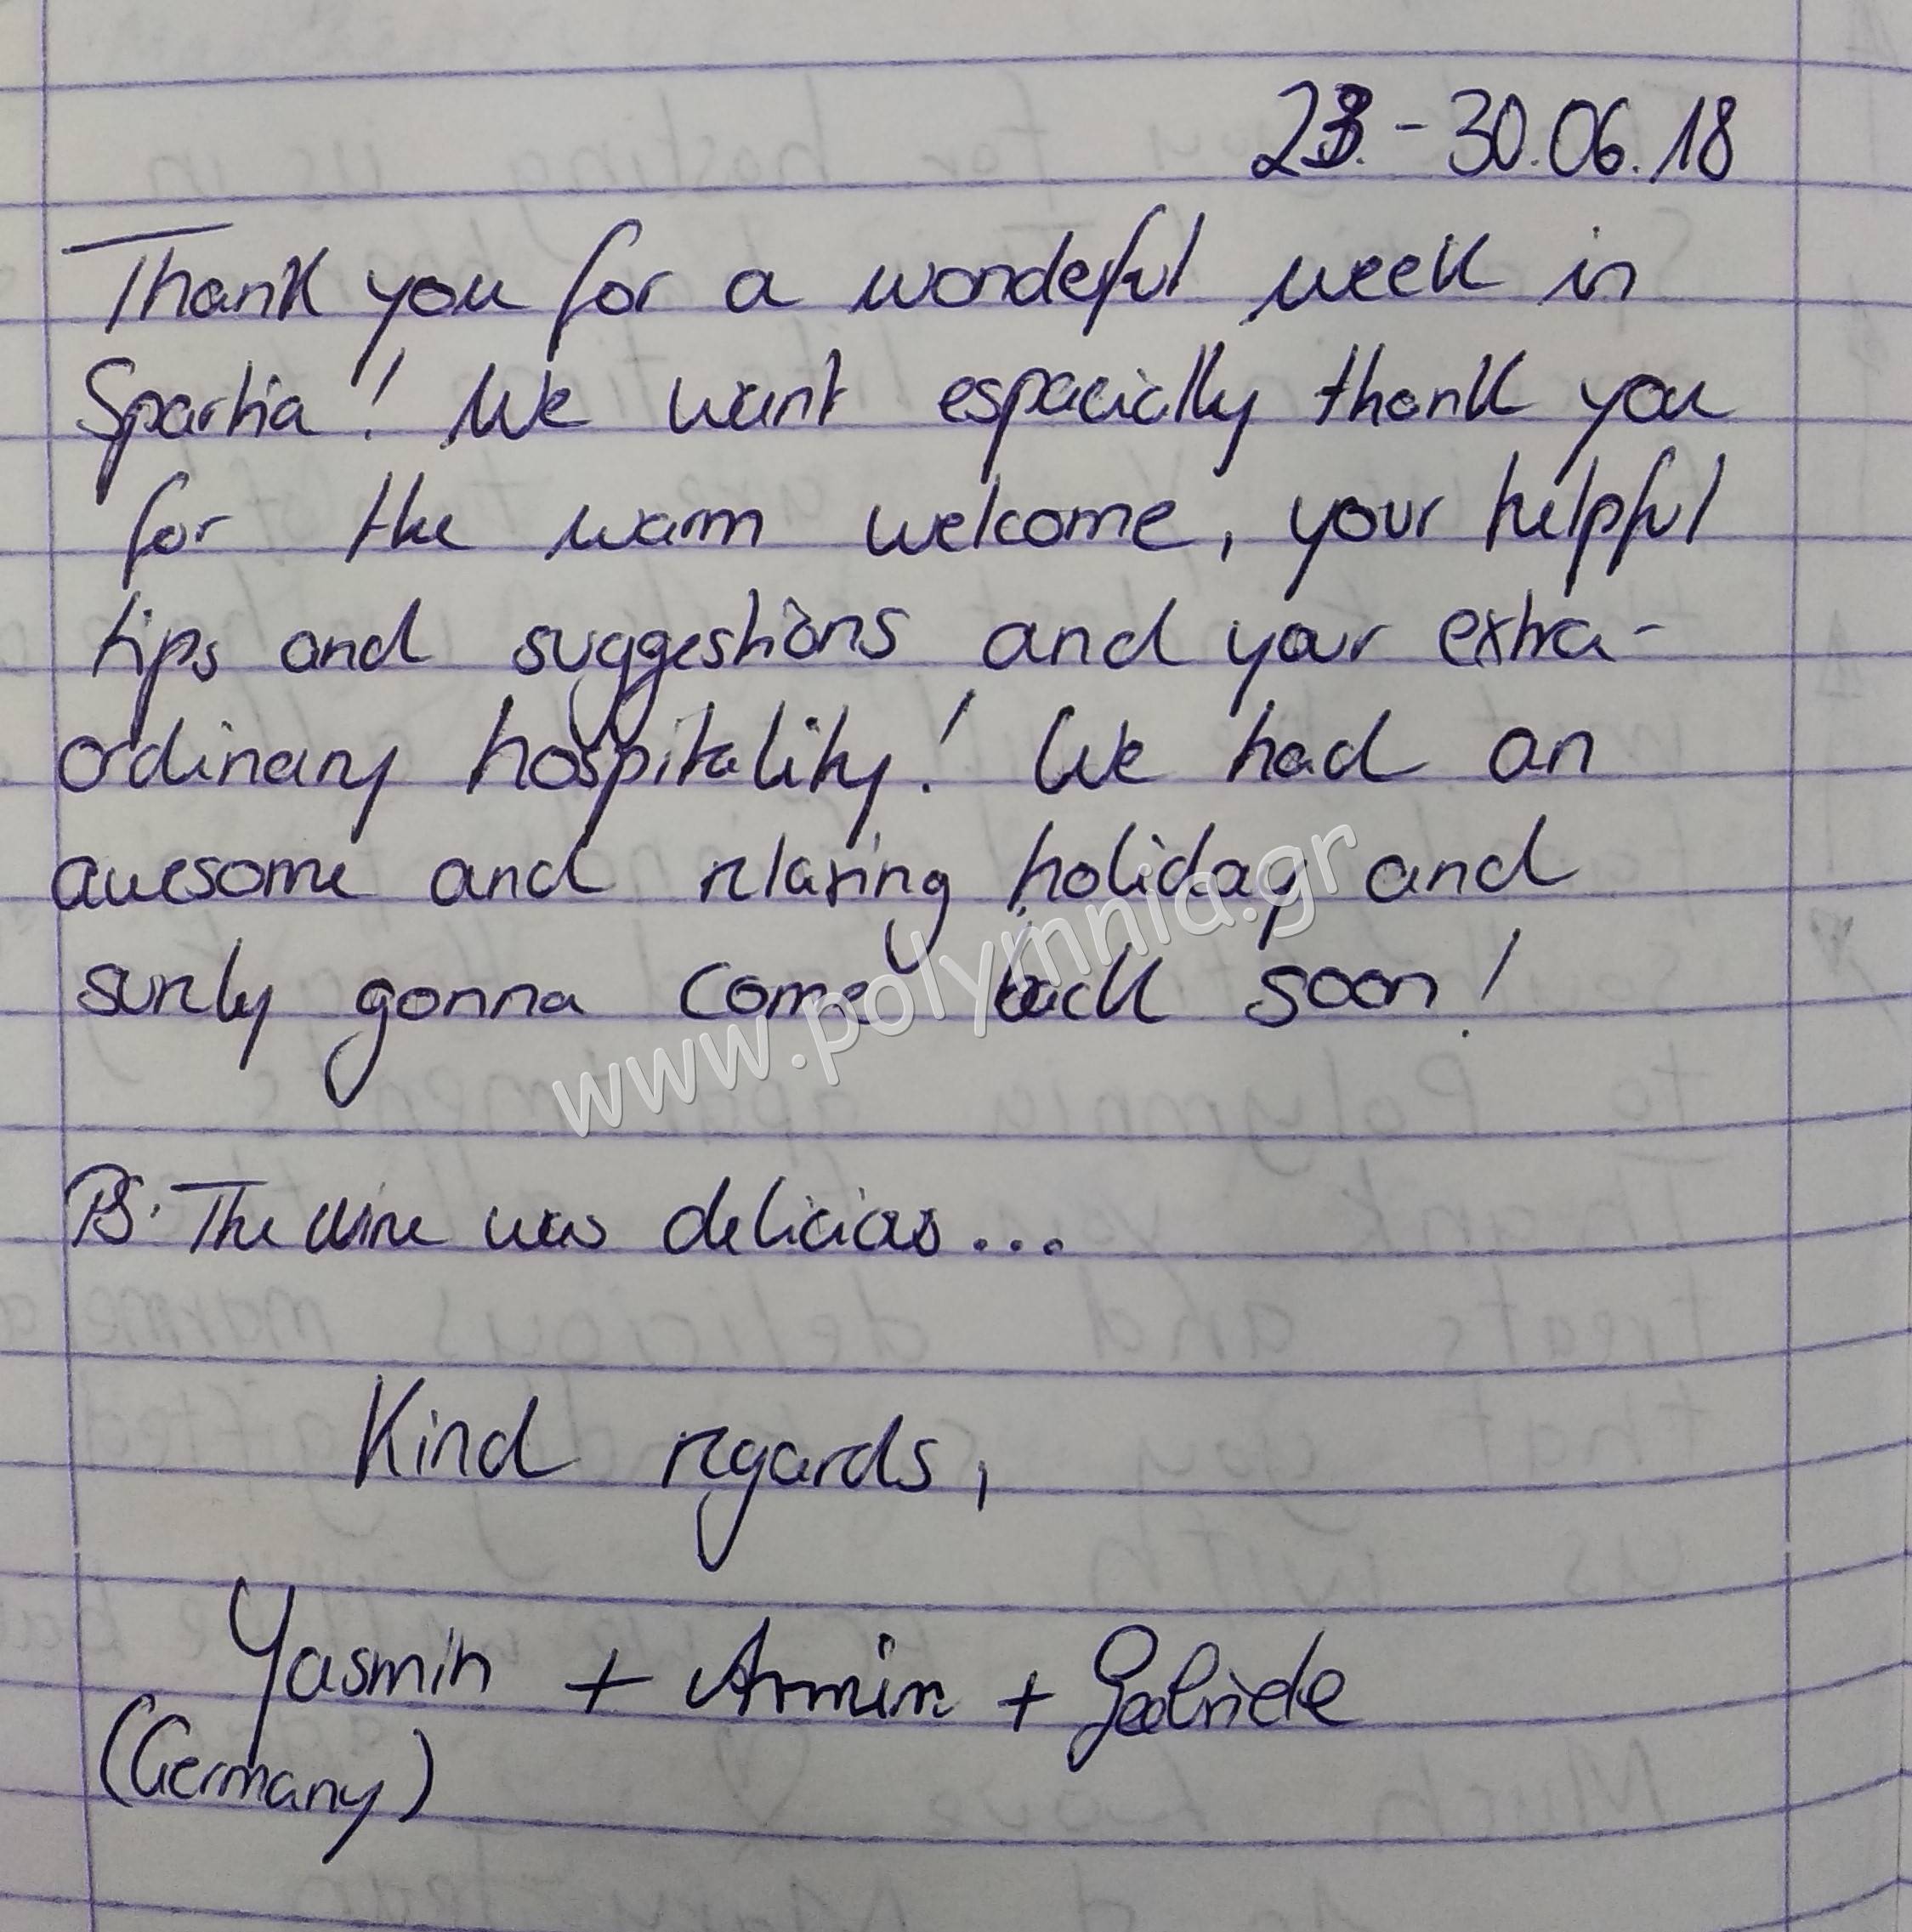 23. - 30.06.18
Thank you for a wondeful week in
Spartia! We want espacially thank you
for the warm welcome, your helpful
tips and suggestions and your extra-
ordinary hospitality! We had an
awesome and relaxing holiday and
surely gonna come back soon!
www.polymnia.gr
PS: The wine was delicias...
Kind regards,
Yasmin + Armin + Gabriele
(Germany)